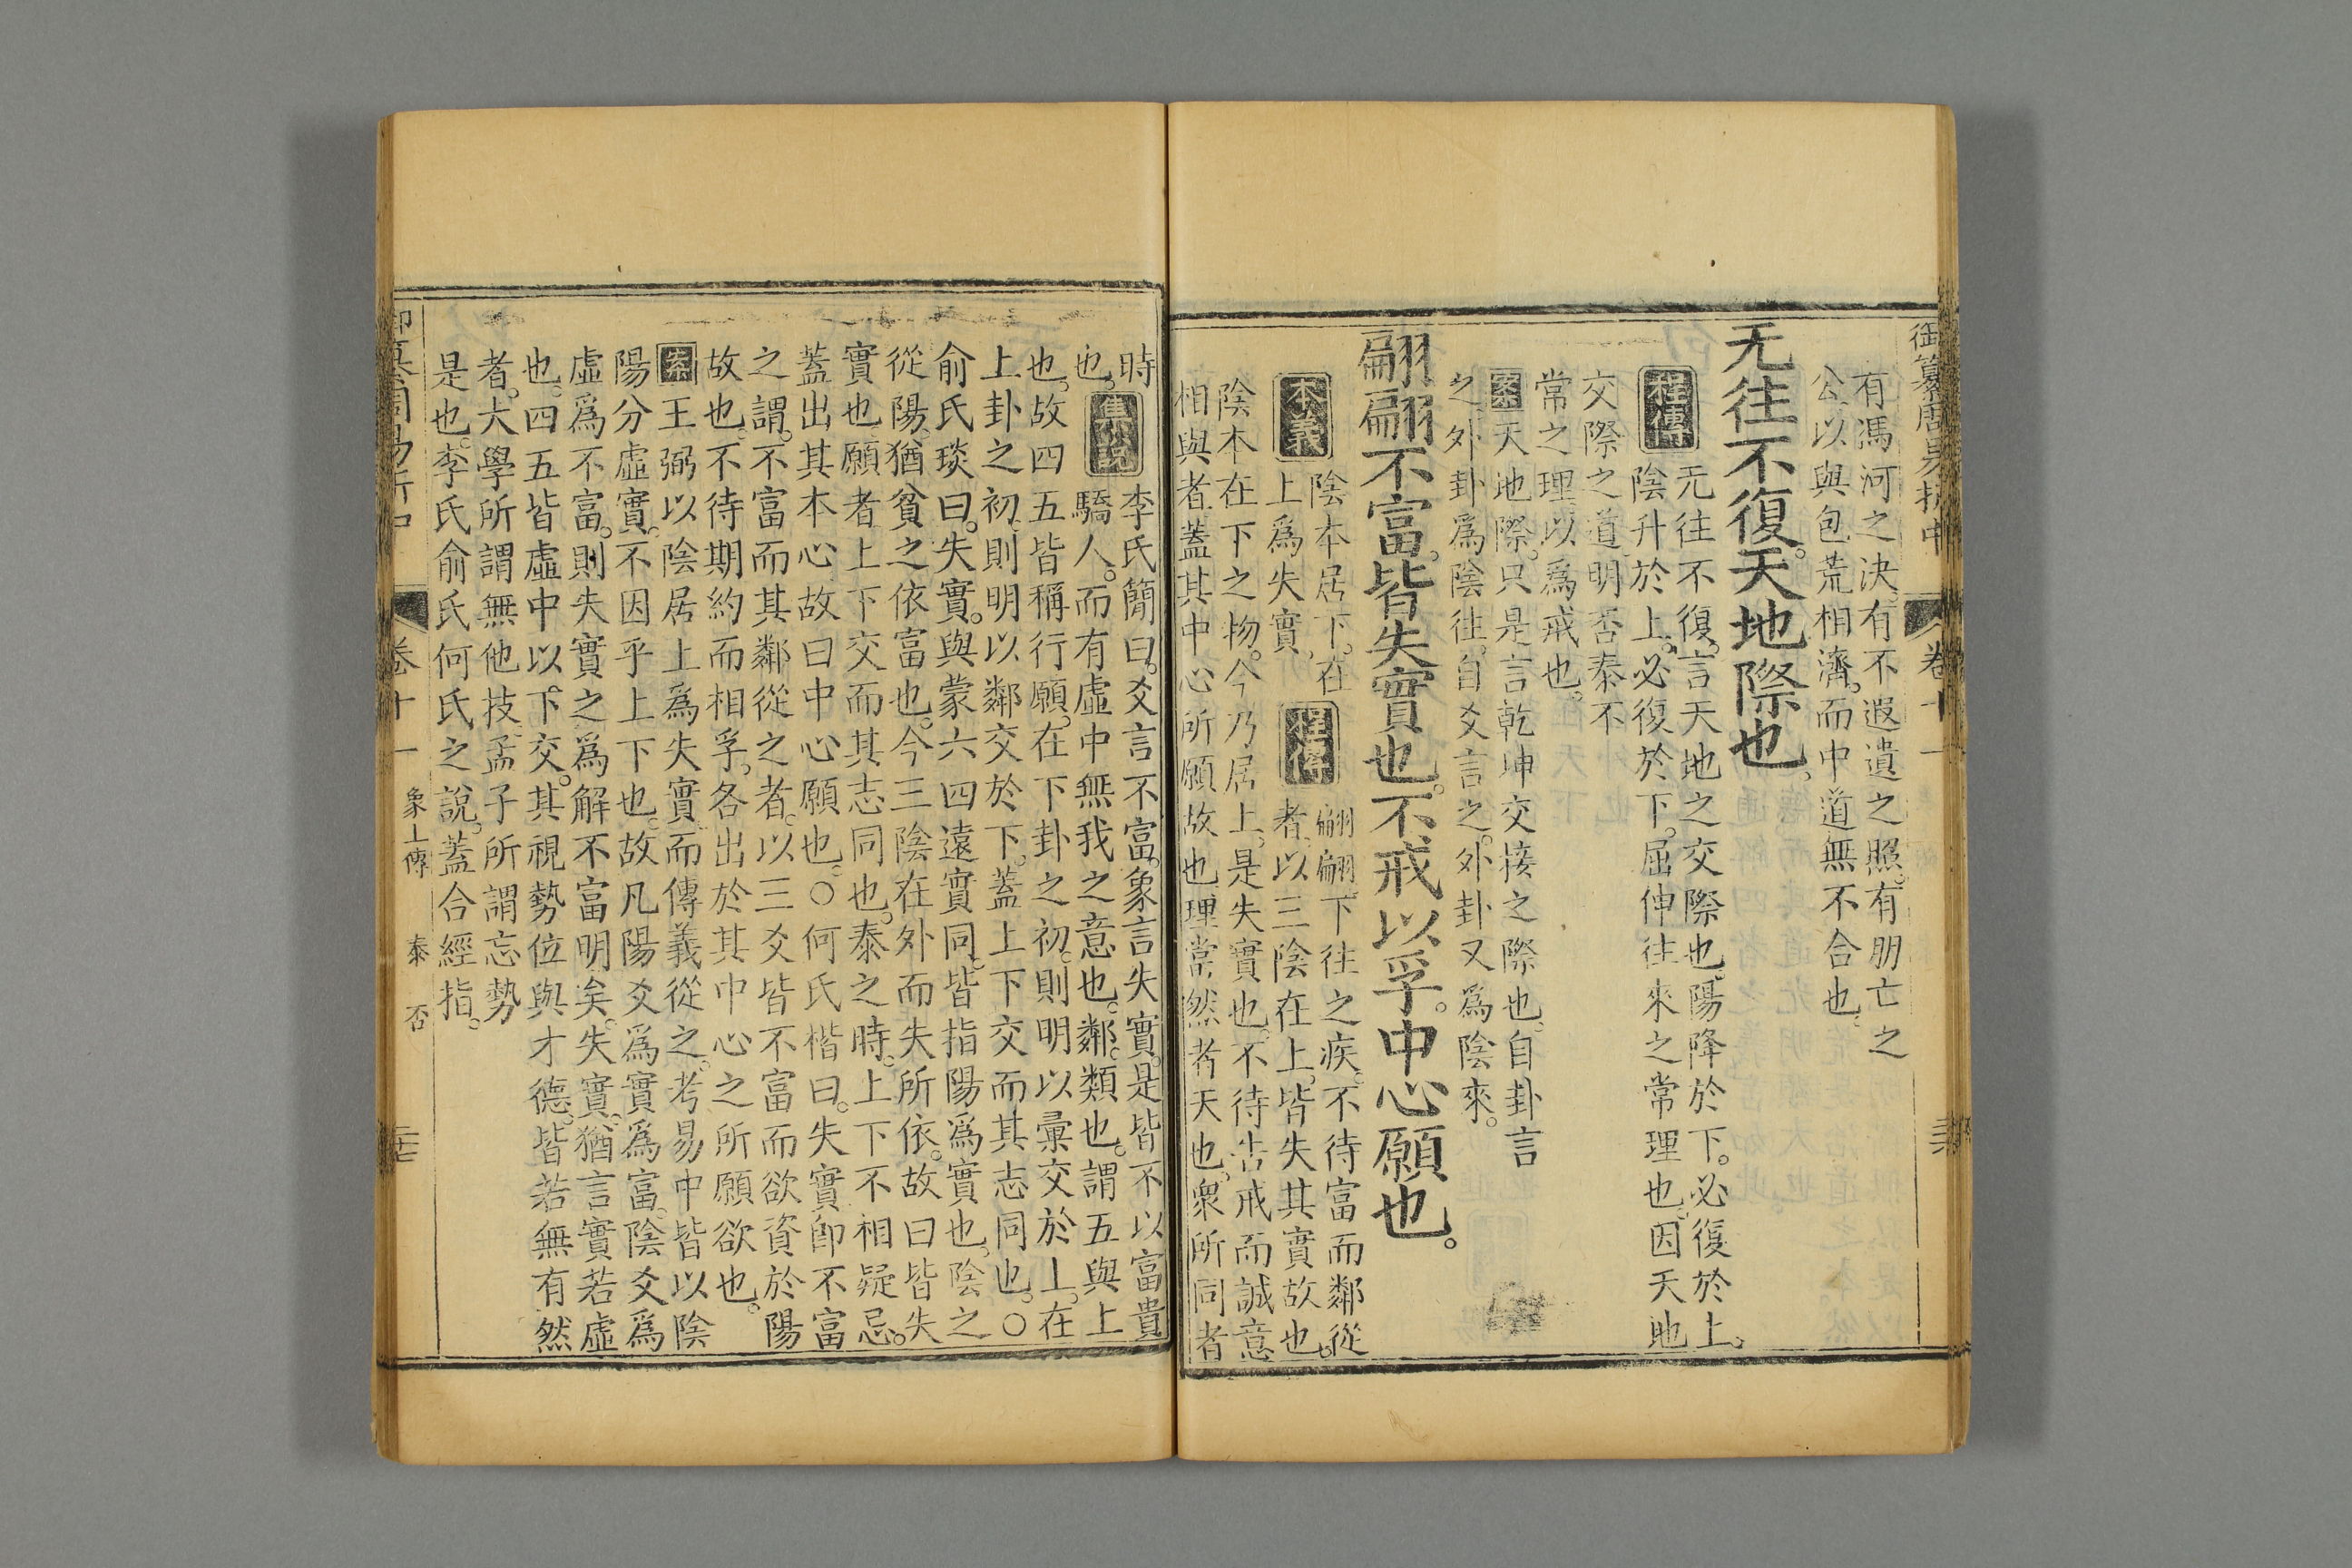 御纂周易折中
卷十一
有馮河之決。有不遐遺之照。有朋亡之
公。以與包荒相濟。而中道無不合也。
无往不復。天地際也。
程傳
无往不復。言天地之交際也。陽降於下。必復於上。
陰升於上。必復於下。屈伸往來之常理也。因天地
交際之道。明否泰不
常之理。以爲戒也。
案天地際。只是言乾坤交接之際也。自卦言
之。外卦爲陰往。自爻言之。外卦又爲陰來。
翩翩不富。皆失實也。不戒以孚。中心願也。
本義
陰本居下。在
上爲失實。
程傳
翩翩下往之疾。不待富而鄰從
者。以三陰在上。皆失其實故也。
陰本在下之物。今乃居上。是失實也。不待告戒而誠意
相與者。蓋其中心所願故也。理當然者天也。衆所同者
時
也。
集說
李氏簡曰。爻言不富。象言失實。是皆不以富貴
驕人。而有虛中無我之意也。鄰。類也。謂五與上
也。故四五皆稱行願。在下卦之初。則明以彙交於上。在
上卦之初。則明以鄰交於下。蓋上下交而其志同也。〇
俞氏琰曰。失實。與蒙六四遠實同。皆指陽爲實也。陰之
從陽。猶貧之依富也。今三陰在外而失所依。故曰皆失
實也。願者上下交而其志同也。泰之時。上下不相疑忌。
蓋出其本心。故曰中心願也。〇何氏楷曰。失實卽不富
之謂。不富而其鄰從之者。以三爻皆不富而欲資於陽
故也。不待期約而相孚。各出於其中心之所願欲也。
案王弼以陰居上爲失實。而傳義從之。考易中皆以陰
陽分虛實。不因乎上下也。故凡陽爻爲實爲富。陰爻爲
虛爲不富。則失實之爲解不富明矣。失實。猶言實若虛
也。四五皆虛中以下交。其視勢位與才德。皆若無有然
者。大學所謂無他技。孟子所謂忘勢
是也。李氏俞氏何氏之說。蓋合經指。
卷十一
象上傳
泰
否